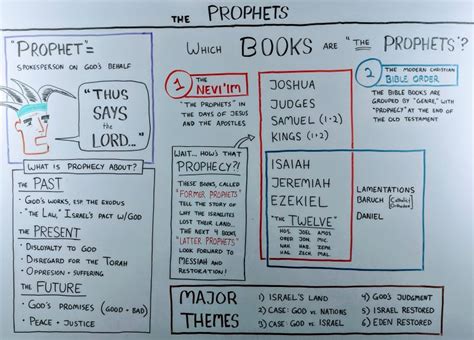 THE PROPHETS
"PROPHET"=
SPOKESPERSON ON GOD'S BEHALF
"THUS
SAYS
THE
LORD..."
WHAT IS PROPHECY ABOUT?
THE PAST
• GOD'S WORKS, ESP. THE EXODUS
• "THE LAW," ISRAEL'S PACT W/GOD
THE PRESENT
• DISLOYALTY TO GOD
• DISREGARD FOR THE TORAH
• OPPRESSION + SUFFERING
THE FUTURE
• GOD'S PROMISES (GOOD + BAD)
• PEACE + JUSTICE
WHICH BOOKS ARE "THE PROPHETS"?
1 THE
NEVI'IM
"THE PROPHETS" IN
THE DAYS OF JESUS
AND THE APOSTLES
WAIT... HOW'S THAT
PROPHECY?!
THESE BOOKS, CALLED
"FORMER PROPHETS"
TELL THE STORY OF
WHY THE ISRAELITES
LOST THEIR LAND...
THE NEXT 4 BOOKS,
"LATTER PROPHETS"
LOOK FORWARD TO
MESSIAH AND
RESTORATION!
JOSHUA
JUDGES
SAMUEL (1+2)
KINGS (1+2)
ISAIAH
JEREMIAH
EZEKIEL
"THE TWELVE"
HOS. JOEL AMOS
OBED JON. MIC.
NAH. HAB. ZEPH.
HAG. ZECH. MAL.
2 THE MODERN CHRISTIAN
BIBLE ORDER
THE BIBLE BOOKS ARE
GROUPED BY "GENRE," WITH
"PROPHECY" AT THE END OF
THE OLD TESTAMENT
LAMENTATIONS
BARUCH [Catholic/Orthodox]
DANIEL
MAJOR
THEMES
1) ISRAEL'S LAND
2) CASE: GOD VS. NATIONS
3) CASE: GOD VS. ISRAEL
4) GOD'S JUDGMENT
5) ISRAEL RESTORED
6) EDEN RESTORED